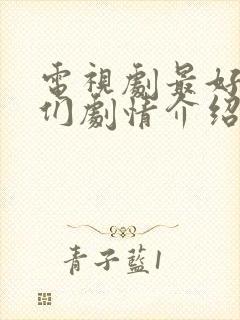 電視劇最好
们劇情介紹
青子藍1